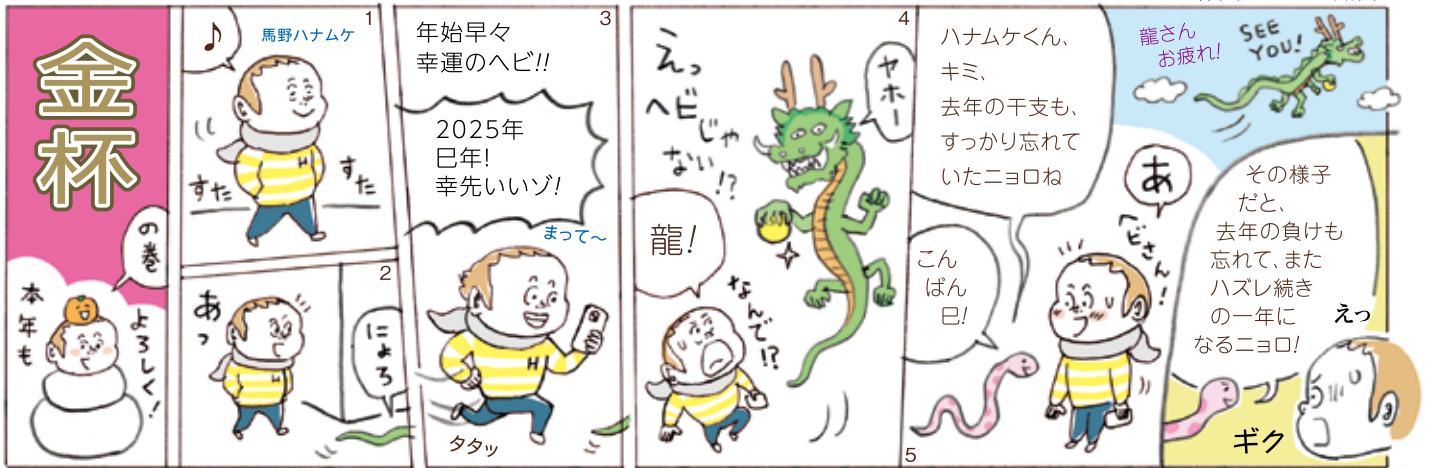 金杯
の巻
本年も
よろしく!
1
♪
馬野ハナムケ
すた
すた
2
あっ
にょろ
3
年始早々
幸運のヘビ!!
2025年
巳年!
幸先いいゾ!
まって〜
タタッ
4
えっ
ヘビじゃ
ない!?
ヤホー
龍!
なんで!?
5
ハナムケくん、
キミ、
去年の干支も、
すっかり忘れて
いたニョロね
こん
ばん
巳!
あ
ヘビさん!
龍さん
お疲れ!
SEE
YOU!
その様子
だと、
去年の負けも
忘れて、また
ハズレ続き
の一年に
なるニョロ!
えっ
ギク
H
H
H